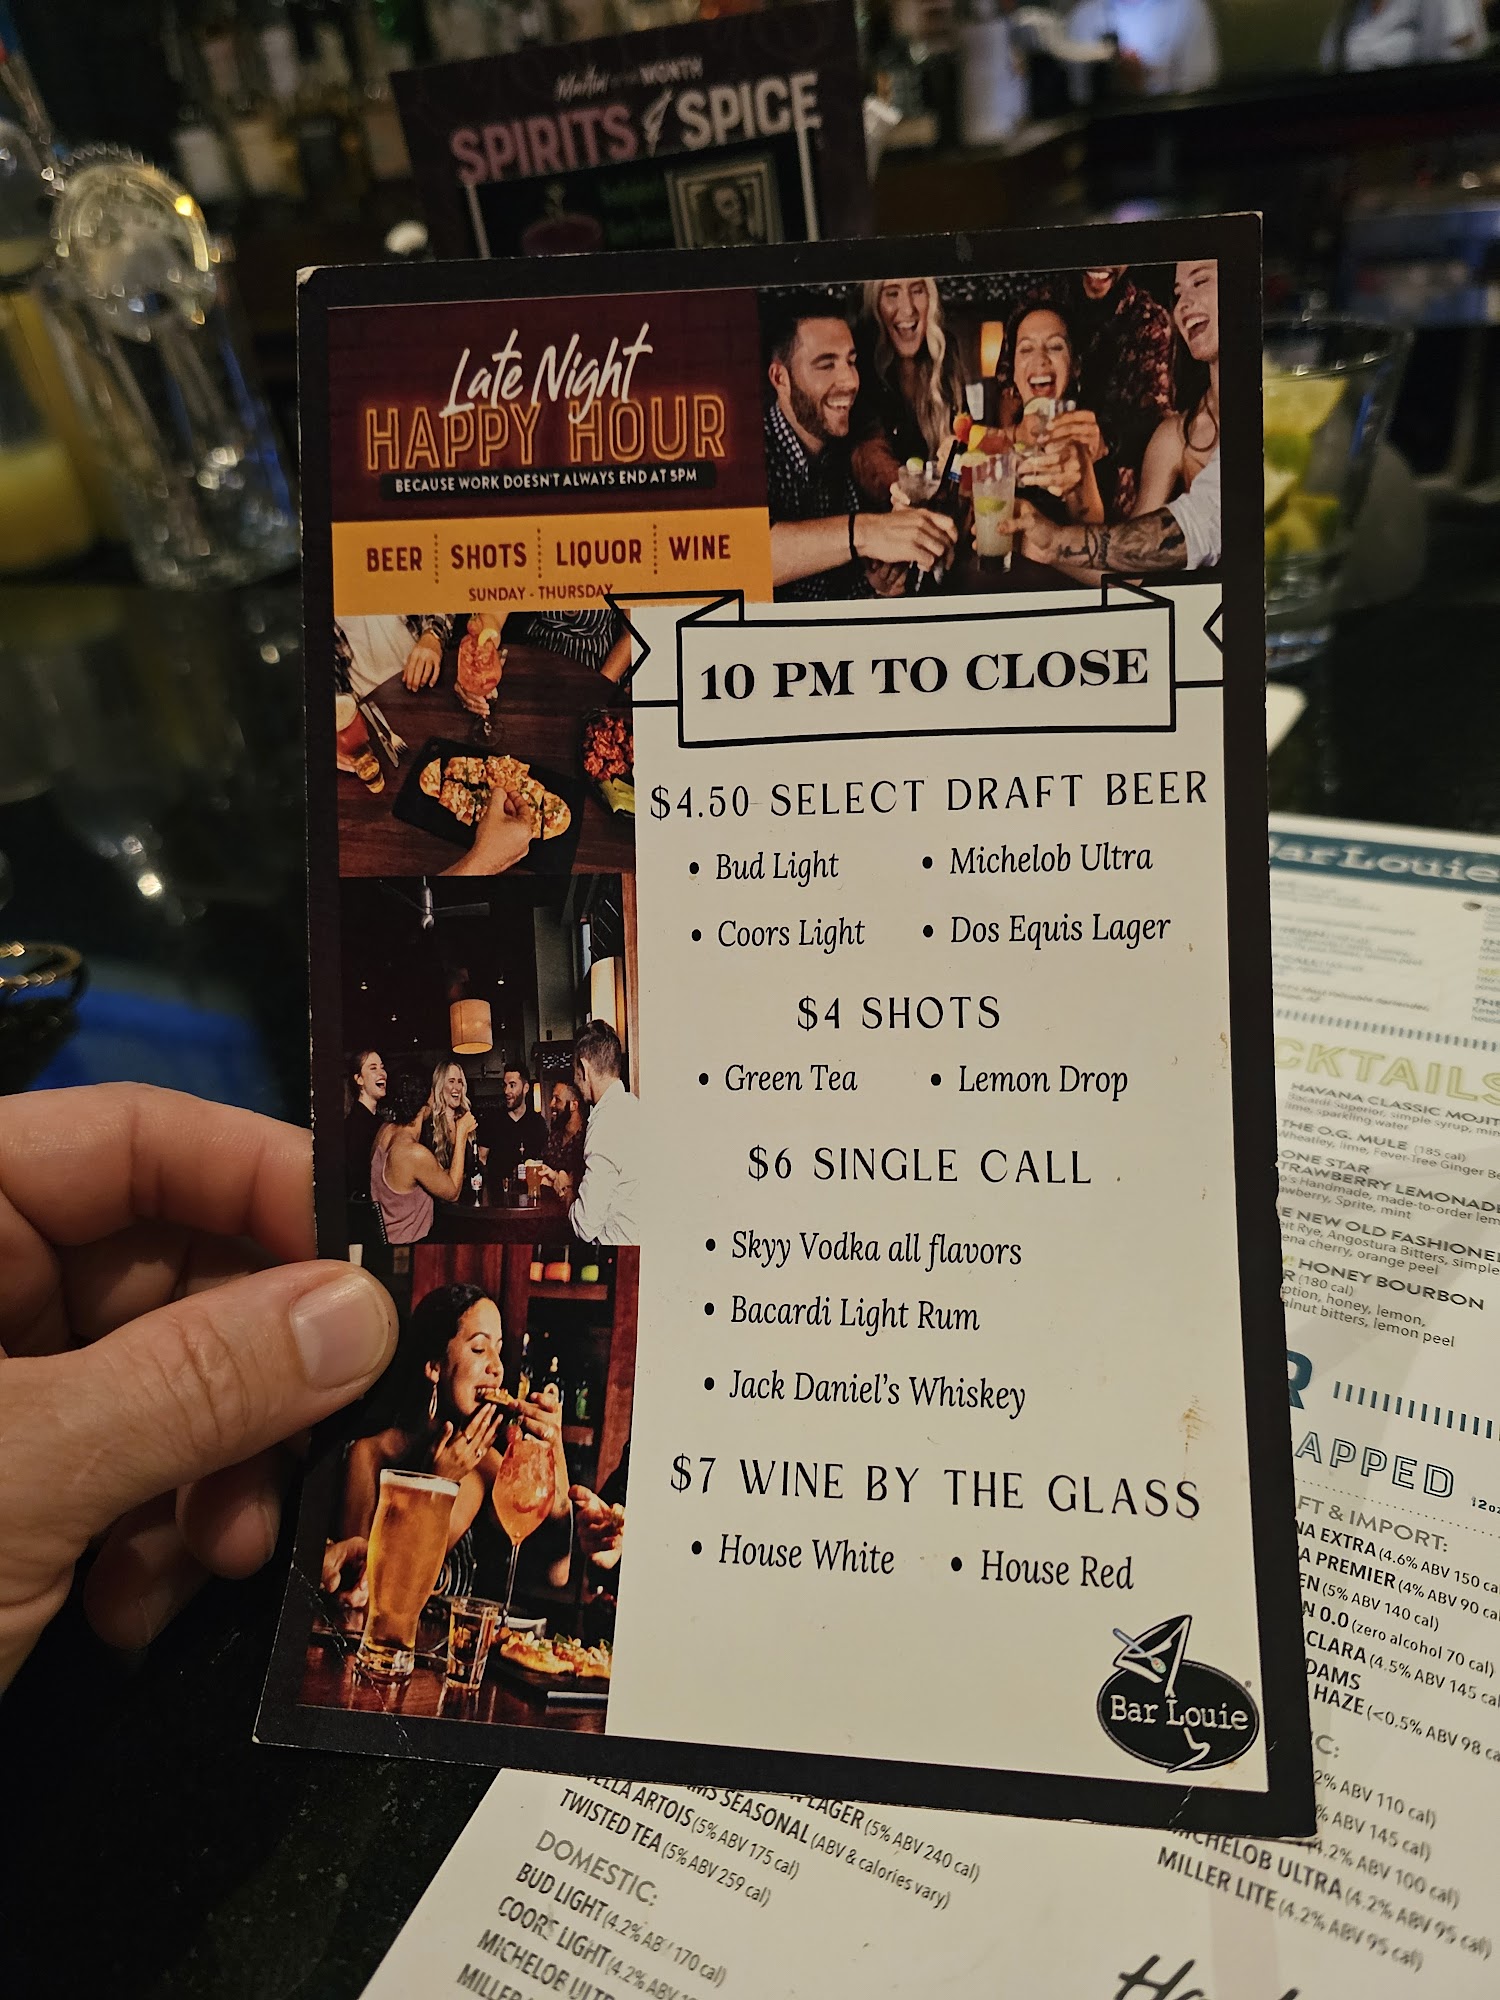 SPIRITS & SPICE
Late Night
HAPPY HOUR
BECAUSE WORK DOESN'T ALWAYS END AT 5PM
BEER SHOTS LIQUOR WINE
SUNDAY - THURSDAY
10 PM TO CLOSE
$4.50 SELECT DRAFT BEER
• Bud Light • Michelob Ultra
• Coors Light • Dos Equis Lager
$4 SHOTS
• Green Tea • Lemon Drop
$6 SINGLE CALL
• Skyy Vodka all flavors
• Bacardi Light Rum
• Jack Daniel's Whiskey
$7 WINE BY THE GLASS
• House White • House Red
Bar Louie
BarLouie
CKTAILS
HAVANA CLASSIC MOJIT
Bacardi Superior, simple syrup, min
lime, sparkling water
THE O.G. MULE (185 cal)
Wheatley, lime, Fever-Tree Ginger Be
ONE STAR
TRAWBERRY LEMONADE
o's Handmade, made-to-order lem
awberry, Sprite, mint
E NEW OLD FASHIONE
eit Rye, Angostura Bitters, simple
ena cherry, orange peel
HONEY BOURBON
R (180 cal)
ption, honey, lemon,
alnut bitters, lemon peel
R
APPED
FT & IMPORT:
NA EXTRA (4.6% ABV 150 ca
A PREMIER (4% ABV 90 ca
EN (5% ABV 140 cal)
N 0.0 (zero alcohol 70 cal)
CLARA (4.5% ABV 145 ca
DAMS
HAZE (<0.5% ABV 98 ca
C:
2% ABV 110 cal)
% ABV 145 cal)
4.2% ABV 100 cal)
MICHELOB ULTRA (4.2% ABV 95 cal)
MILLER LITE (4.2% ABV 95 cal)
LAGER (5% ABV 240 cal)
MS SEASONAL (ABV & calories vary)
ELLA ARTOIS (5% ABV 175 cal)
TWISTED TEA (5% ABV 259 cal)
DOMESTIC:
BUD LIGHT (4.2% ABV 170 cal)
COORS LIGHT (4.2% ABV
MICHELOB ULTR
MILLER